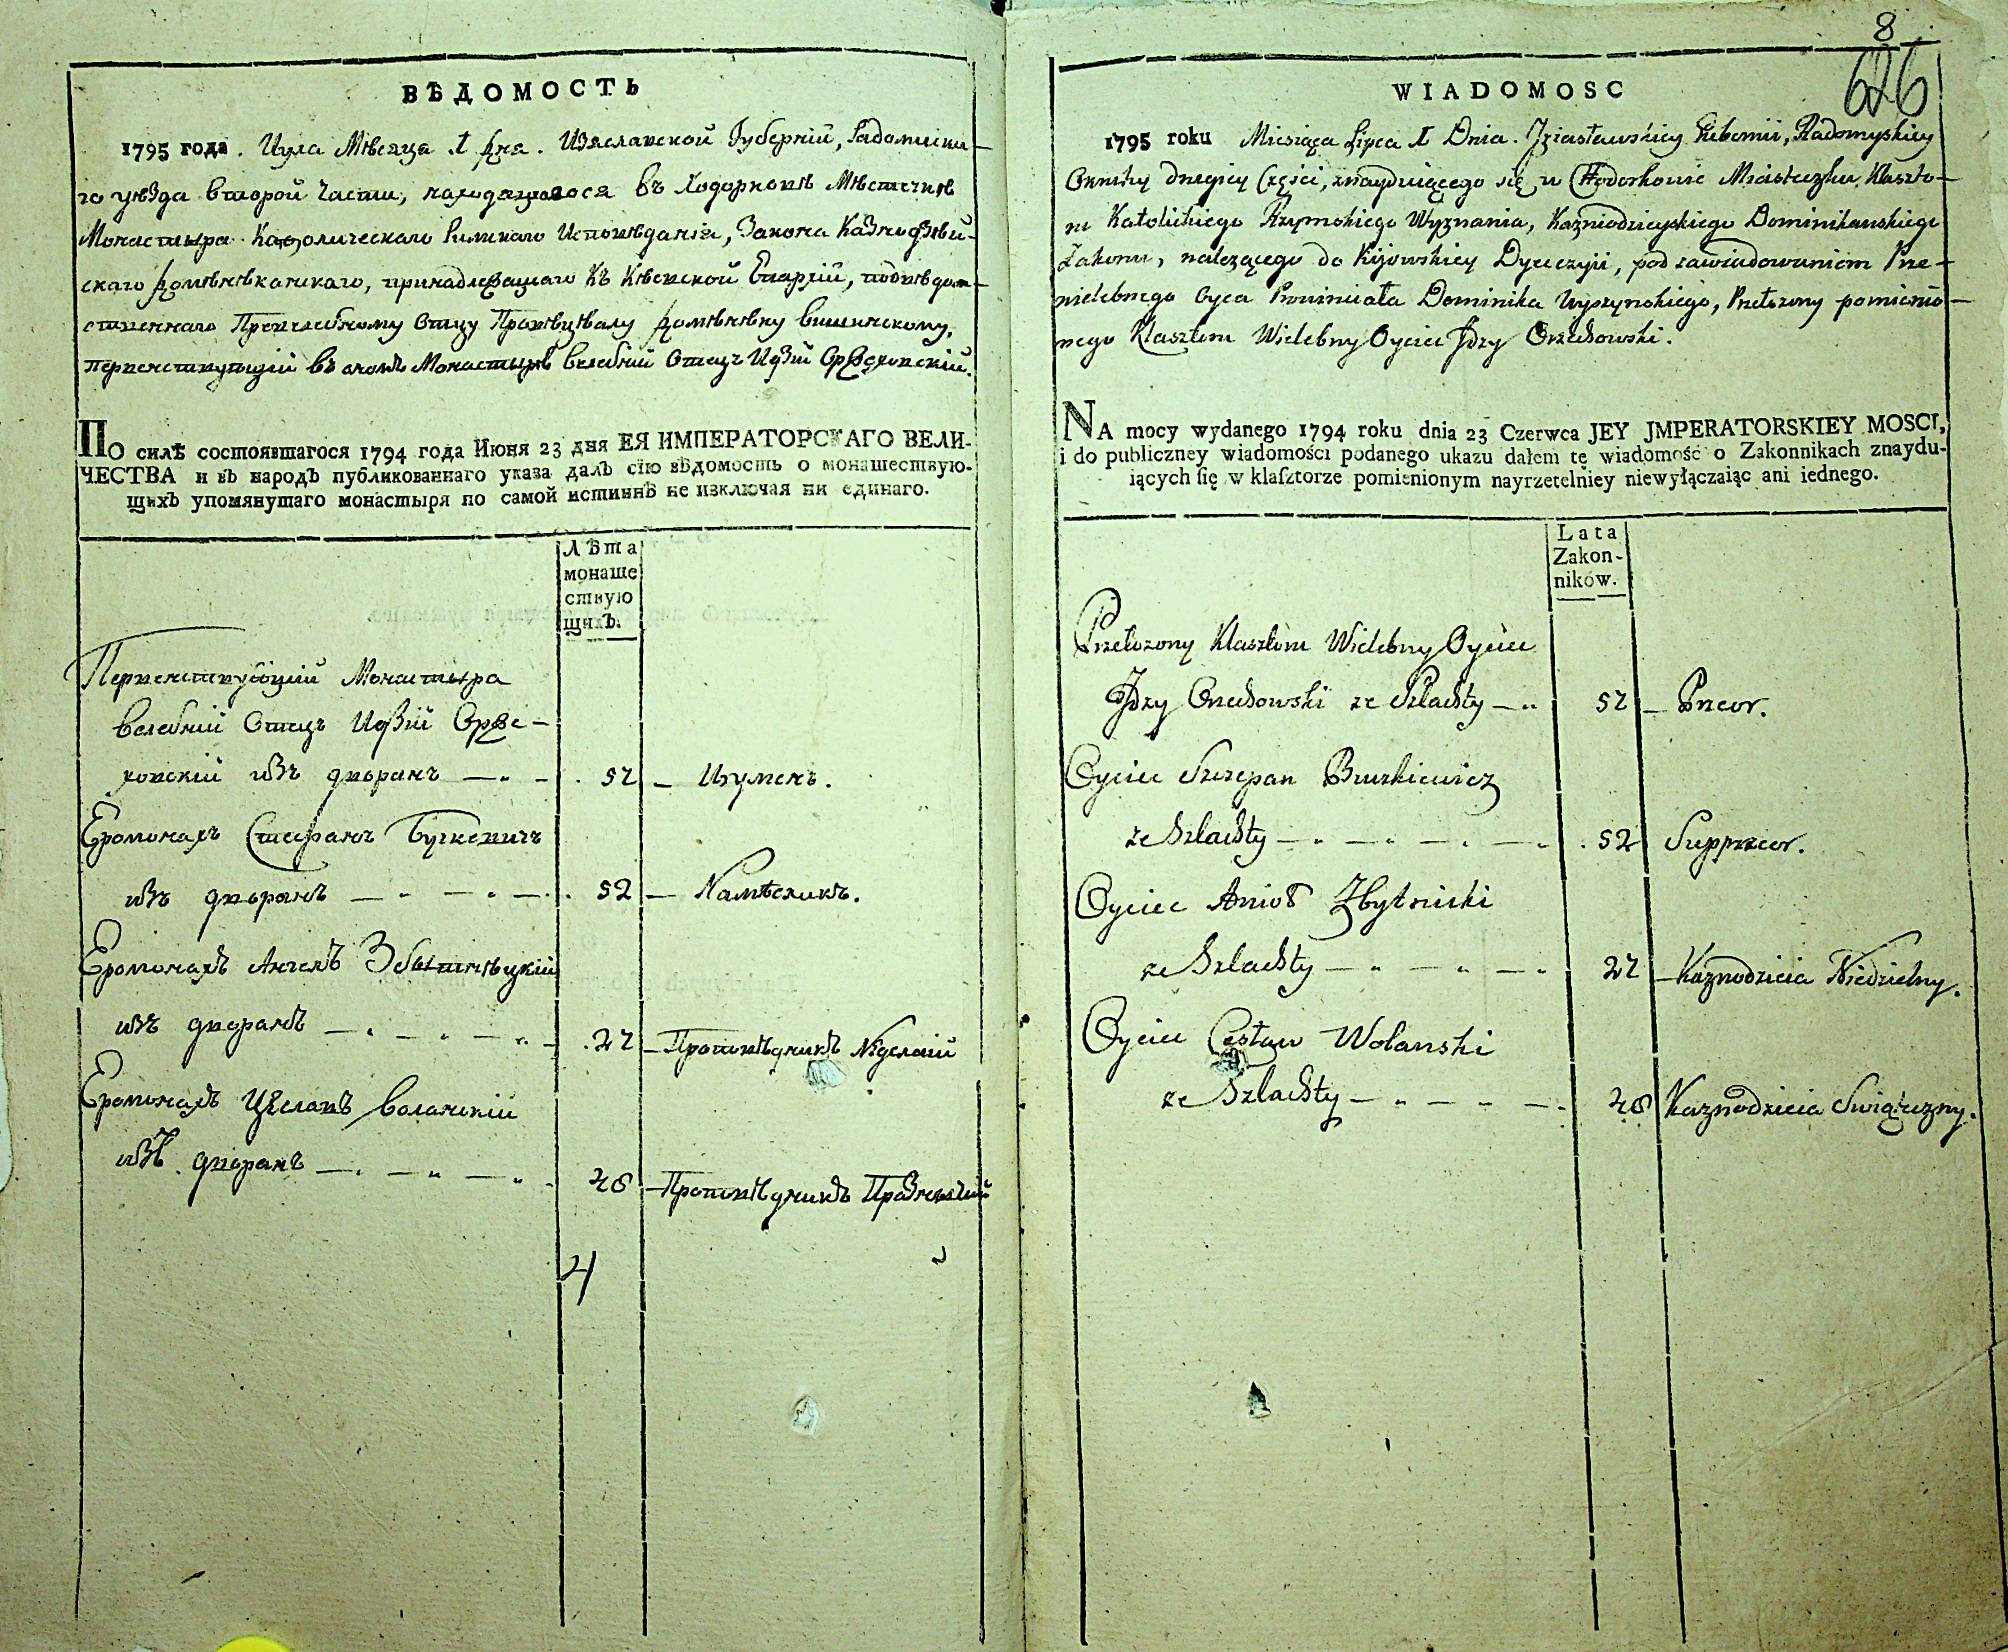 ВѢДОМОСТЬ
1795 года. Иула Мѣсяца 1 дня. Изяславской Губерній, Радомиска-
го уѣзда второй части, находящагося въ Ходорковѣ Мѣстечкѣ
Монастыра Католическаго Римскаго Исповѣданія, Закона Казнодѣй-
скаго Домѣнѣканскаго, принадлежащаго къ Кѣевской Епархій, подвѣдом-
ственнаго Преподобному Отцу Провѣнцѣалу Домѣнѣку Вишинскому,
первенствующій въ ономъ Монастырѣ велебній Отецъ Идзій Оржеховскій.
ПО силѣ состоявшагося 1794 года Июня 23 дня ЕЯ ИМПЕРАТОРСКАГО ВЕЛИ-
ЧЕСТВА и въ народъ публикованнаго указа далъ сію вѣдомость о монашествую-
щихъ упомянутаго монастыря по самой истиннѣ не изключая ни единаго.
Лѣта
монаше
ствую
щихъ.
Первенствующій Монастыра
велебній Отецъ Идзій Орже-
ховскій изъ дворанъ — 52 — Игуменъ.
Еромонахъ Стефанъ Бучкевичъ
изъ дворанъ — 52 — Намѣсникъ.
Еромонахъ Ангелъ Збытнѣцкій
изъ дворанъ — 27 — Проповѣдникъ Неделній
Еромонахъ Цѣславъ Воланскій
изъ дворанъ — 28 — Проповѣдникъ Празнечній
4
8
626
WIADOMOSC
1795 roku Miesiąca Lipca 1 Dnia. Jziasławskiey Gubernii, Radomyskiey
Okruhy drugiey Części, znayduiącego się w Chodorkowie Miasteczku, Klaszto-
ru Katolickiego Rzymskiego Wyznania, Kaznodzieyskiego Dominikańskiego
Zakonu, należącego do Kijowskiey Dyecezyi, pod zawiadowaniem Prze-
wielebnego Oyca Prowinciała Dominika Wyszynskiego, Przełożony pomienio-
nego Klasztoru Wielebny Oyciec Jdzy Orzechowski.
NA mocy wydanego 1794 roku dnia 23 Czerwca JEY JMPERATORSKIEY MOSCI,
i do publiczney wiadomości podanego ukazu dałem tę wiadomość o Zakonnikach znaydu-
iących się w klasztorze pomienionym nayrzetelniey niewyłączaiąc ani iednego.
Lata
Zakon-
ników.
Przełożony Klasztoru Wielebny Oyciec
Jdzy Orzechowski ze Szlachty — 52 — Przeor.
Oyciec Szczepan Buczkiewicz
ze Szlachty — 52 Supprzeor.
Oyciec Anioł Zbytnicki
ze Szlachty — 27 — Kaznodzieia Niedzielny.
Oyciec Cesław Wolanski
ze Szlachty — 28 Kaznodzieia Swiąteczny.